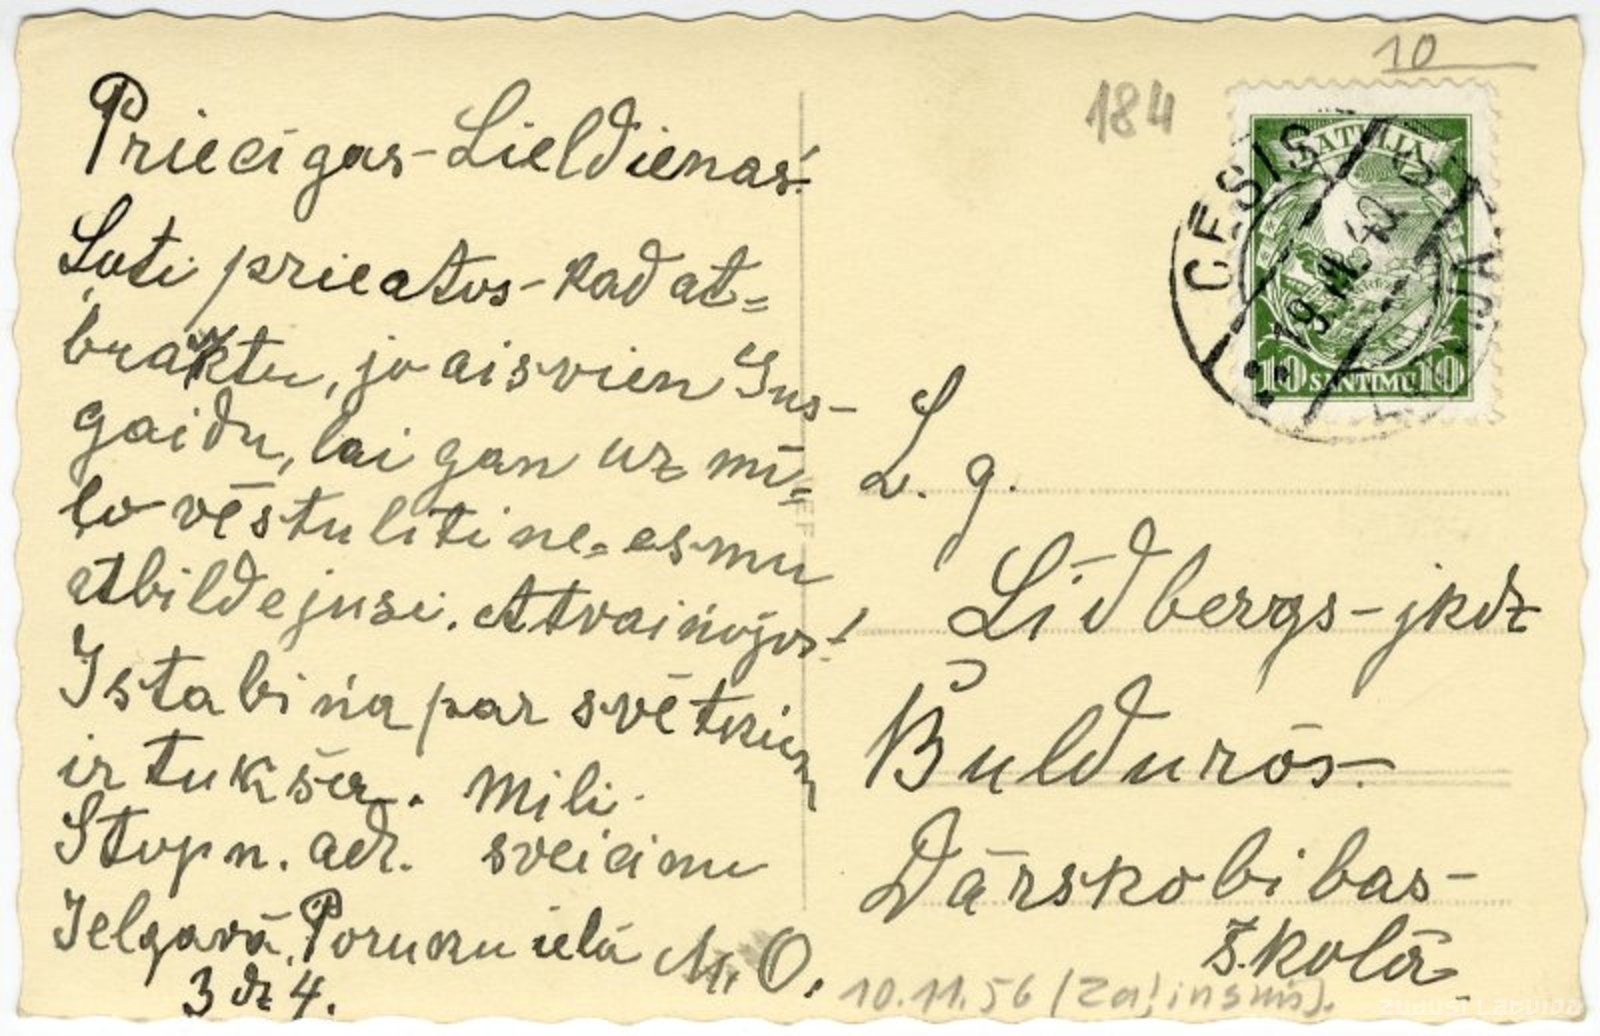 Priecīgas-Lieldienas!
Ļoti priecātos-kad at=
brauktu, jo aizvien Jūs-
gaidu, lai gan uz mī=
ļo vēstulīti ne=esmu
atbildejusi. Atvainojos!
Istabiņa par svētkiem
ir tukša. Mīļi
Stopn. adr. sveicinu
Jelgavā, Poruku ielā M. O.
3 dz 4.
10
184
CĒSIS
LATVIJA
10 SANTIMU 10
L. g.
Līdbergs-jkdz
Bulduros.
Dārskobibas-
skolā
10.11.56 (Zaļinskis).
zudusi Latvija